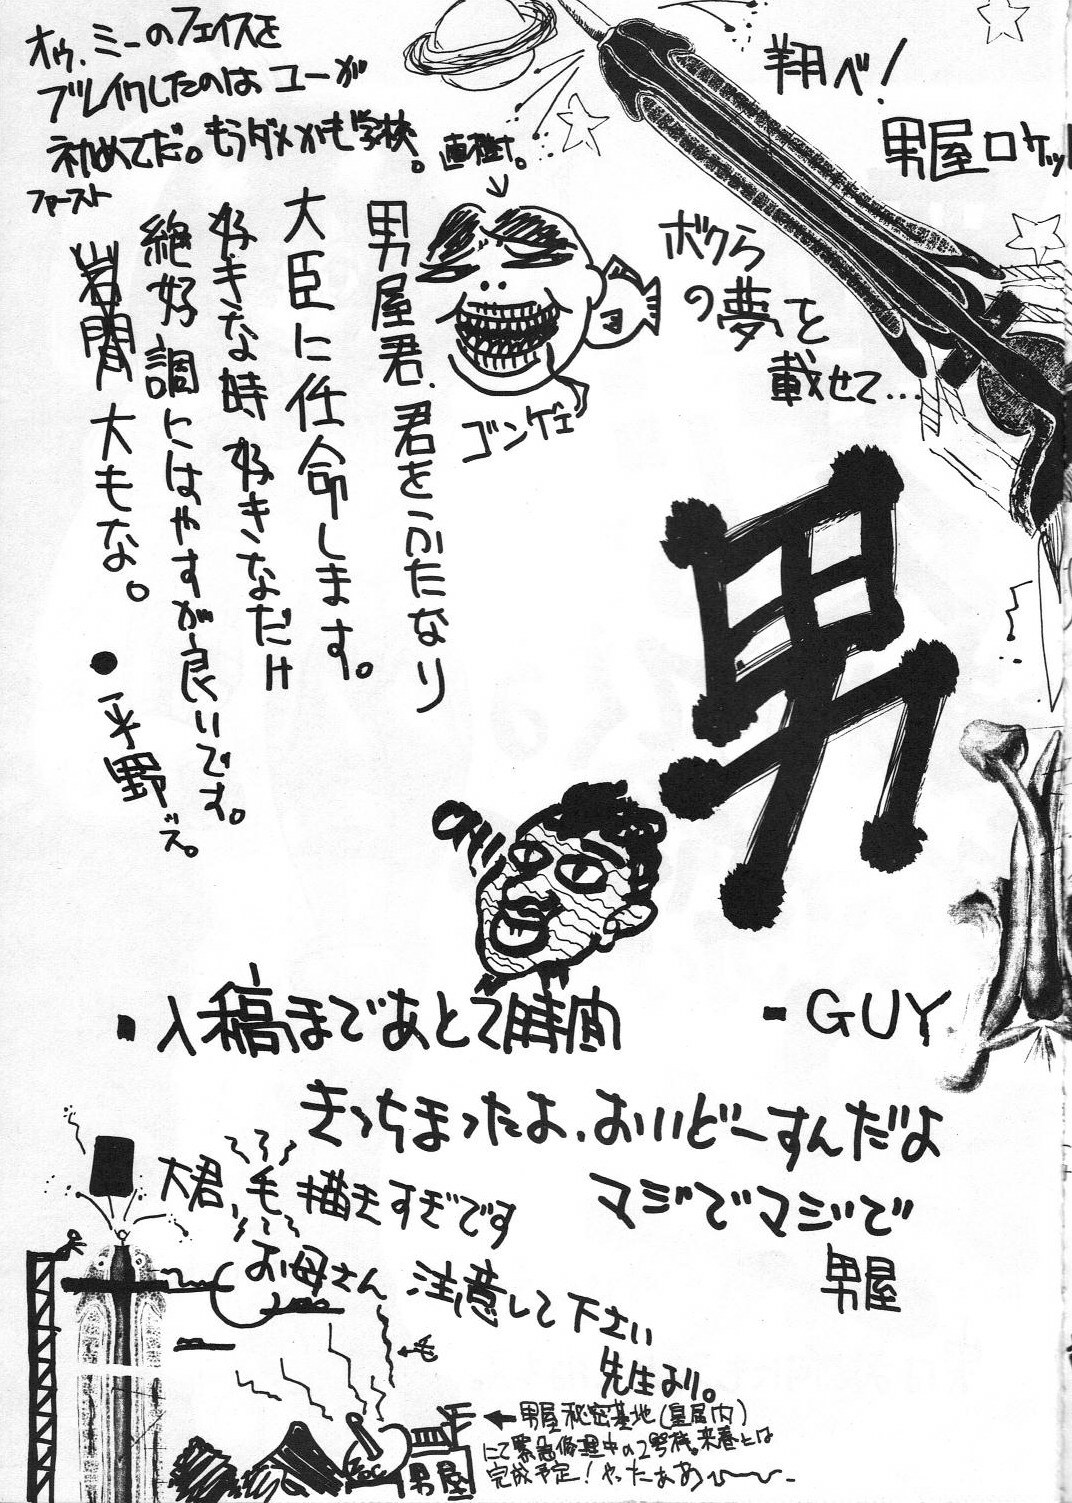 オゥ、ミーのフェイスを
ブレイクしたのはユーが
初めてだ。もうダメかも学校。
ファースト
直樹。
ゴンゲェ
翔べ!
男屋ロケッ
ボクら
の夢を
載せて…
男屋君、君をふたなり
大臣に任命します。
好きな時好きなだけ
絶好調にはやすが良いです。
岩間 大もな。
●平野ス。
男
CHU
・GUY
・入稿まであと2時間
きっちまったよ、おいどーすんだよ
マジでマジで
男屋
大君、毛描きすぎです
お母さん 注意して下さい
先生より。
←毛
←男屋秘密基地(皇居内)
にて緊急修理中の2号機。来春とは
完成予定!やったぁあ〜〜
男屋